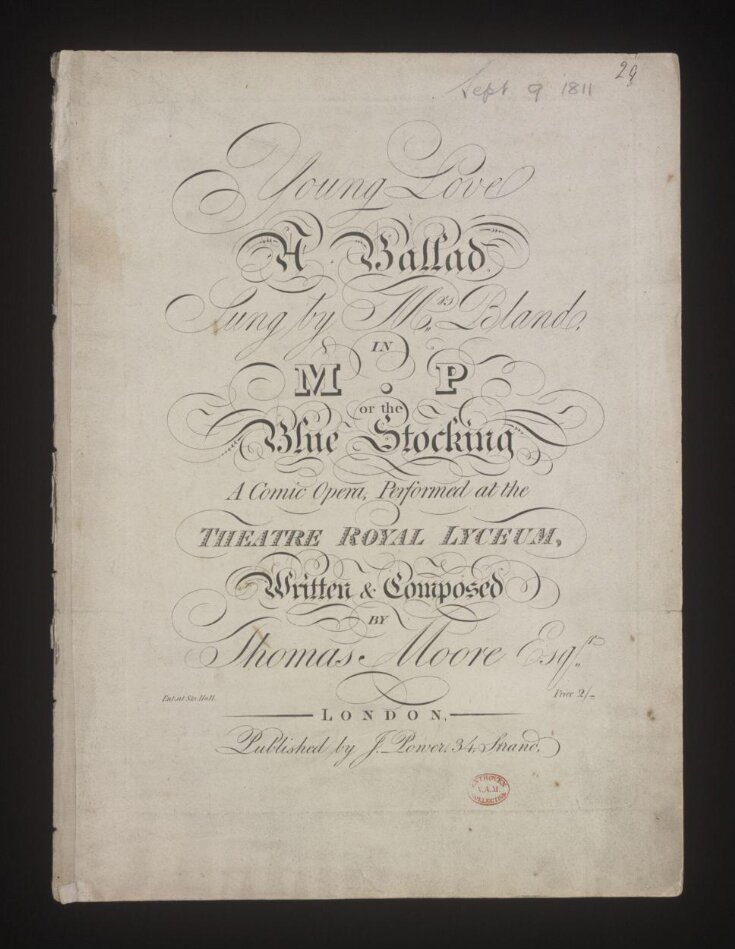 29
Sept 9 1811
Young Love
A Ballad
Sung by Mrs. Bland.
IN
M. P
or the
Blue Stocking
A Comic Opera, Performed at the
THEATRE ROYAL LYCEUM,
Written & Composed
BY
Thomas Moore Esqr.
Ent. at Sta. Hall.
Price 2/-
LONDON,
Published by J. Power. 34, Strand.
ENTHOVEN
V.A.M.
COLLECTION